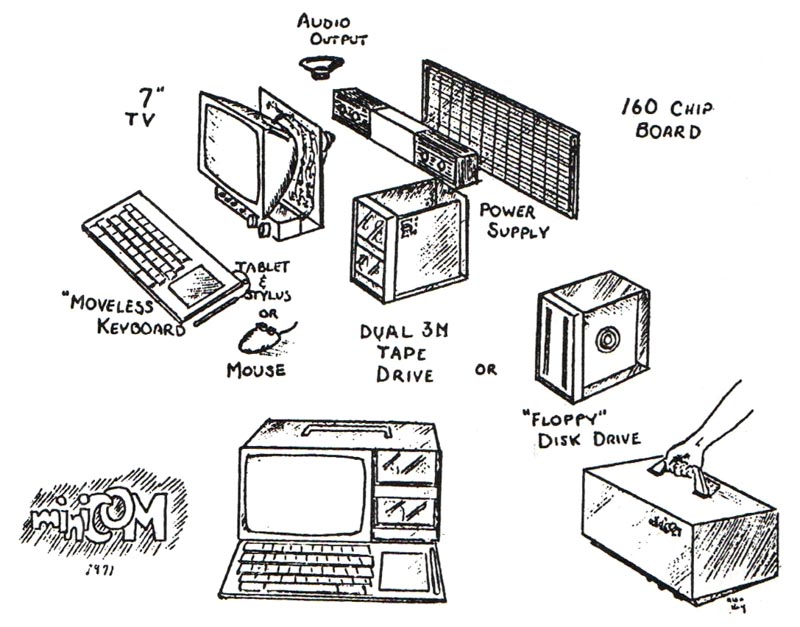 AUDIO
OUTPUT
7"
TV
160 CHIP
BOARD
POWER
SUPPLY
TABLET
&
STYLUS
OR
MOUSE
"MOVELESS
KEYBOARD
DUAL 3M
TAPE
DRIVE
OR
"FLOPPY"
DISK DRIVE
miniCOM
1971